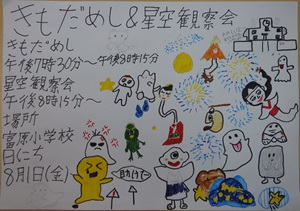 きもだめし&星空観察会
きもだめし
午後7時30分～午後8時15分
星空観察会
午後8時15分～
場所
富原小学校
日にち
8月1日(金)
助けて～